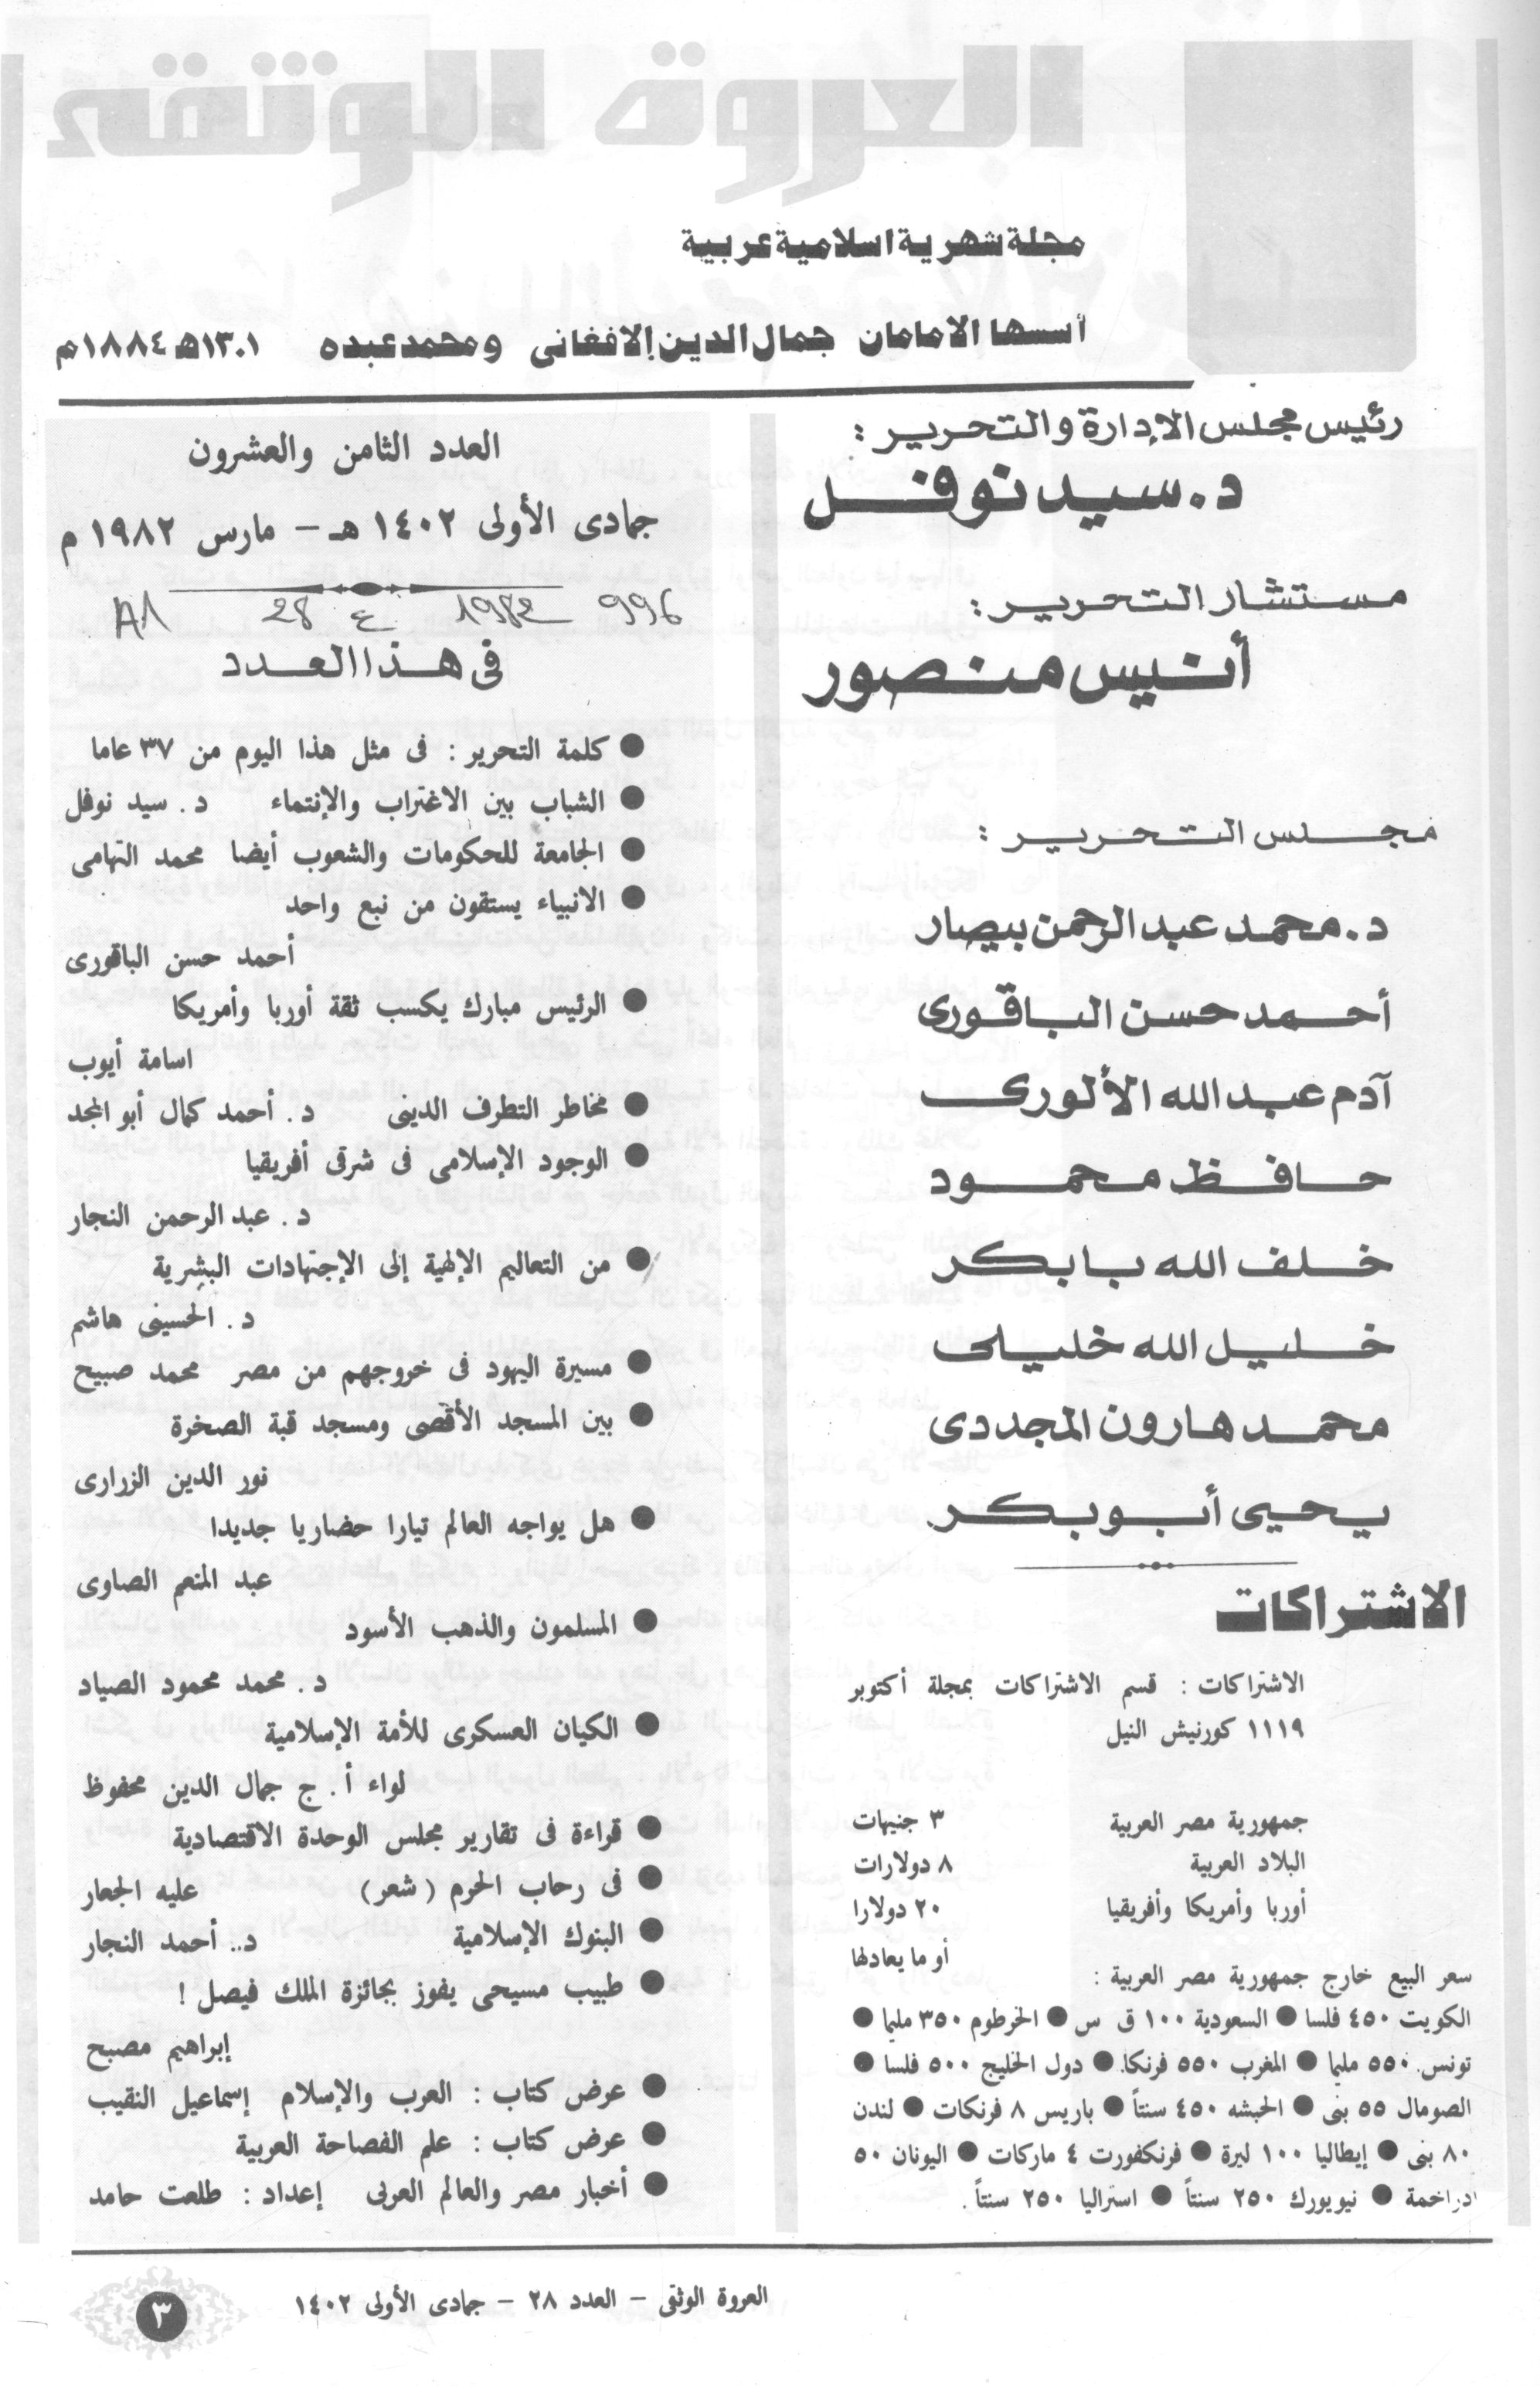 العروة الوثقى
مجلة شهرية اسلامية عربية
أسسها الامامان جمال الدين الافغانى ومحمد عبده ١٣٠١هـ ١٨٨٤م
رئيس مجلس الإدارة والتحرير :
د. سيد نوفل
مستشار التحرير :
أنيس منصور
مجلس التحرير :
د. محمد عبد الرحمن بيصار
أحمد حسن الباقورى
آدم عبد الله الألورى
حافظ محمود
خلف الله بابكر
خليل الله خليلى
محمد هارون المجددى
يحيى أبو بكر
الاشتراكات
الاشتراكات : قسم الاشتراكات بمجلة أكتوبر
١١١٩ كورنيش النيل
جمهورية مصر العربية ٣ جنيهات
البلاد العربية ٨ دولارات
أوربا وأمريكا وأفريقيا ٢٠ دولارا
أو ما يعادلها
سعر البيع خارج جمهورية مصر العربية :
الكويت ٤٥٠ فلسا ● السعودية ١٠٠ ق س ● الخرطوم ٣٥٠ مليما ●
تونس ٥٥٠ مليما ● المغرب ٥٥٠ فرنكا ● دول الخليج ٥٠٠ فلسا ●
الصومال ٥٥ بنى ● الحبشه ٤٥٠ سنتاً ● باريس ٨ فرنكات ● لندن
٨٠ بنى ● إيطاليا ١٠٠ ليرة ● فرنكفورت ٤ ماركات ● اليونان ٥٠
دراخمة ● نيويورك ٢٥٠ سنتاً ● استراليا ٢٥٠ سنتاً.
العدد الثامن والعشرون
جمادى الأولى ١٤٠٢ هـ - مارس ١٩٨٢ م
A1 28 ع 1982 996
فى هذا العدد
● كلمة التحرير : فى مثل هذا اليوم من ٣٧ عاما
● الشباب بين الاغتراب والإنتماء د. سيد نوفل
● الجامعة للحكومات والشعوب أيضا محمد التهامى
● الانبياء يستقون من نبع واحد
أحمد حسن الباقورى
● الرئيس مبارك يكسب ثقة أوربا وأمريكا
اسامة أيوب
● مخاطر التطرف الدينى د. أحمد كمال أبو المجد
● الوجود الإسلامى فى شرقى أفريقيا
د. عبد الرحمن النجار
● من التعاليم الإلهية إلى الإجتهادات البشرية
د. الحسينى هاشم
● مسيرة اليهود فى خروجهم من مصر محمد صبيح
● بين المسجد الأقصى ومسجد قبة الصخرة
نور الدين الزرارى
● هل يواجه العالم تيارا حضاريا جديدا
عبد المنعم الصاوى
● المسلمون والذهب الأسود
د. محمد محمود الصياد
● الكيان العسكرى للأمة الإسلامية
لواء أ. ج جمال الدين محفوظ
● قراءة فى تقارير مجلس الوحدة الاقتصادية
● فى رحاب الحرم ( شعر ) عليه الجعار
● البنوك الإسلامية د.. أحمد النجار
● طبيب مسيحى يفوز بجائزة الملك فيصل !
إبراهيم مصبح
● عرض كتاب : العرب والإسلام إسماعيل النقيب
● عرض كتاب : علم الفصاحة العربية
● أخبار مصر والعالم العربى إعداد : طلعت حامد
العروة الوثقى - العدد ٢٨ - جمادى الأولى ١٤٠٢
٣